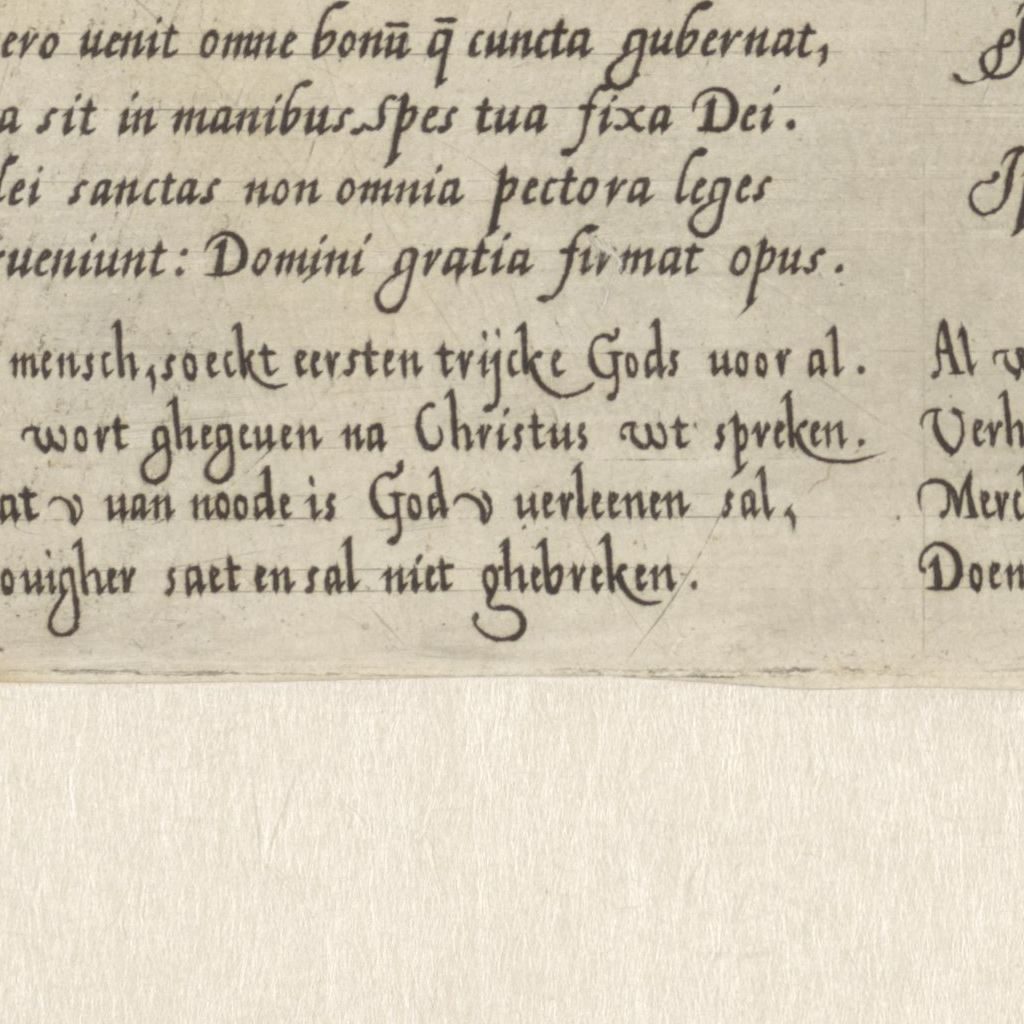 ero uenit omne bonū q̄ cuncta gubernat,
a sit in manibus. Spes tua fixa Dei.
dei sanctas non omnia pectora leges
rueniunt: Domini gratia firmat opus.
mensch, soeckt eersten trijcke Gods uoor al.
wort ghegeuen na Christus wt spreken.
at v uan noode is God v uerleenen sal,
ouigher saet en sal niet ghebreken.
Al
Verh
Merc
Doen